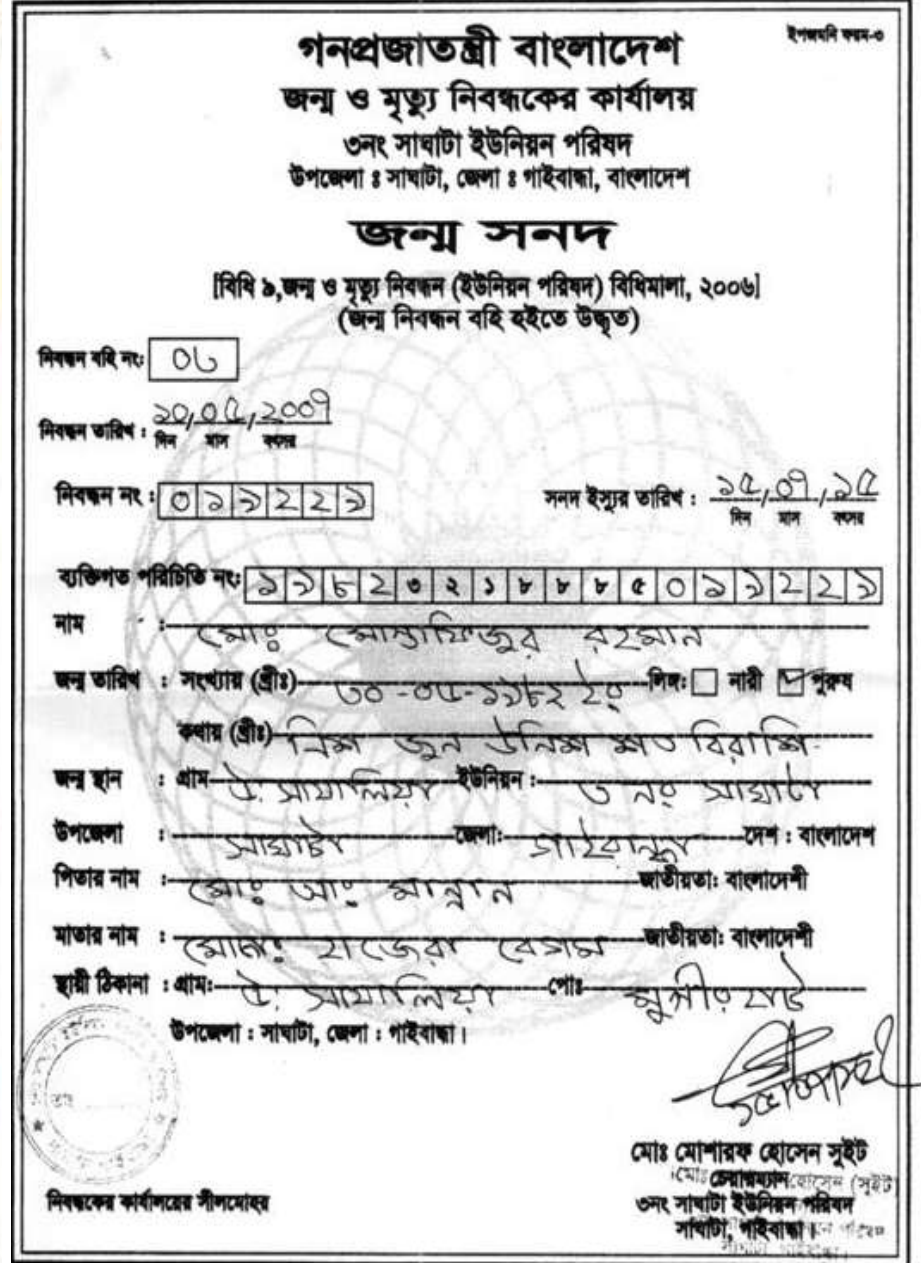 ইপজমনি ফরম-৩
গনপ্রজাতন্ত্রী বাংলাদেশ
জন্ম ও মৃত্যু নিবন্ধকের কার্যালয়
৩নং সাঘাটা ইউনিয়ন পরিষদ
উপজেলা ঃ সাঘাটা, জেলা ঃ গাইবান্ধা, বাংলাদেশ
জন্ম সনদ
[বিধি ৯,জন্ম ও মৃত্যু নিবন্ধন (ইউনিয়ন পরিষদ) বিধিমালা, ২০০৬]
(জন্ম নিবন্ধন বহি হইতে উদ্ধৃত)
নিবন্ধন বহি নং: ০৬
নিবন্ধন তারিখ : ২০/০৫/২০০৭
দিন মাস বৎসর
নিবন্ধন নং : ০১৯২২৯ সনদ ইস্যুর তারিখ : ১৫/০৭/১৫
দিন মাস বৎসর
ব্যক্তিগত পরিচিতি নং: ১৯৮২৩২১৮৮৮৫০১৯২২৯
নাম : মোঃ মোস্তাফিজুর রহমান
জন্ম তারিখ : সংখ্যায় (খ্রীঃ) ৩০-০৬-১৯৮২ ইং লিঙ্গ: নারী পুরুষ
কথায় (খ্রীঃ) ত্রিশ জুন উনিশ শত বিরাশি
জন্ম স্থান : গ্রাম ইউনিয়ন : ৩ নং সাঘাটা
উপজেলা : সাঘাটা জেলা: গাইবান্ধা দেশ : বাংলাদেশ
পিতার নাম : মোঃ আঃ মান্নান জাতীয়তা: বাংলাদেশী
মাতার নাম : মোছাঃ হাজেরা বেগম জাতীয়তা: বাংলাদেশী
স্থায়ী ঠিকানা : গ্রাম: পোঃ
উপজেলা : সাঘাটা, জেলা : গাইবান্ধা।
মোঃ মোশারফ হোসেন সুইট
চেয়ারম্যান
৩নং সাঘাটা ইউনিয়ন পরিষদ
সাঘাটা, গাইবান্ধা।
নিবন্ধকের কার্যালয়ের সীলমোহর